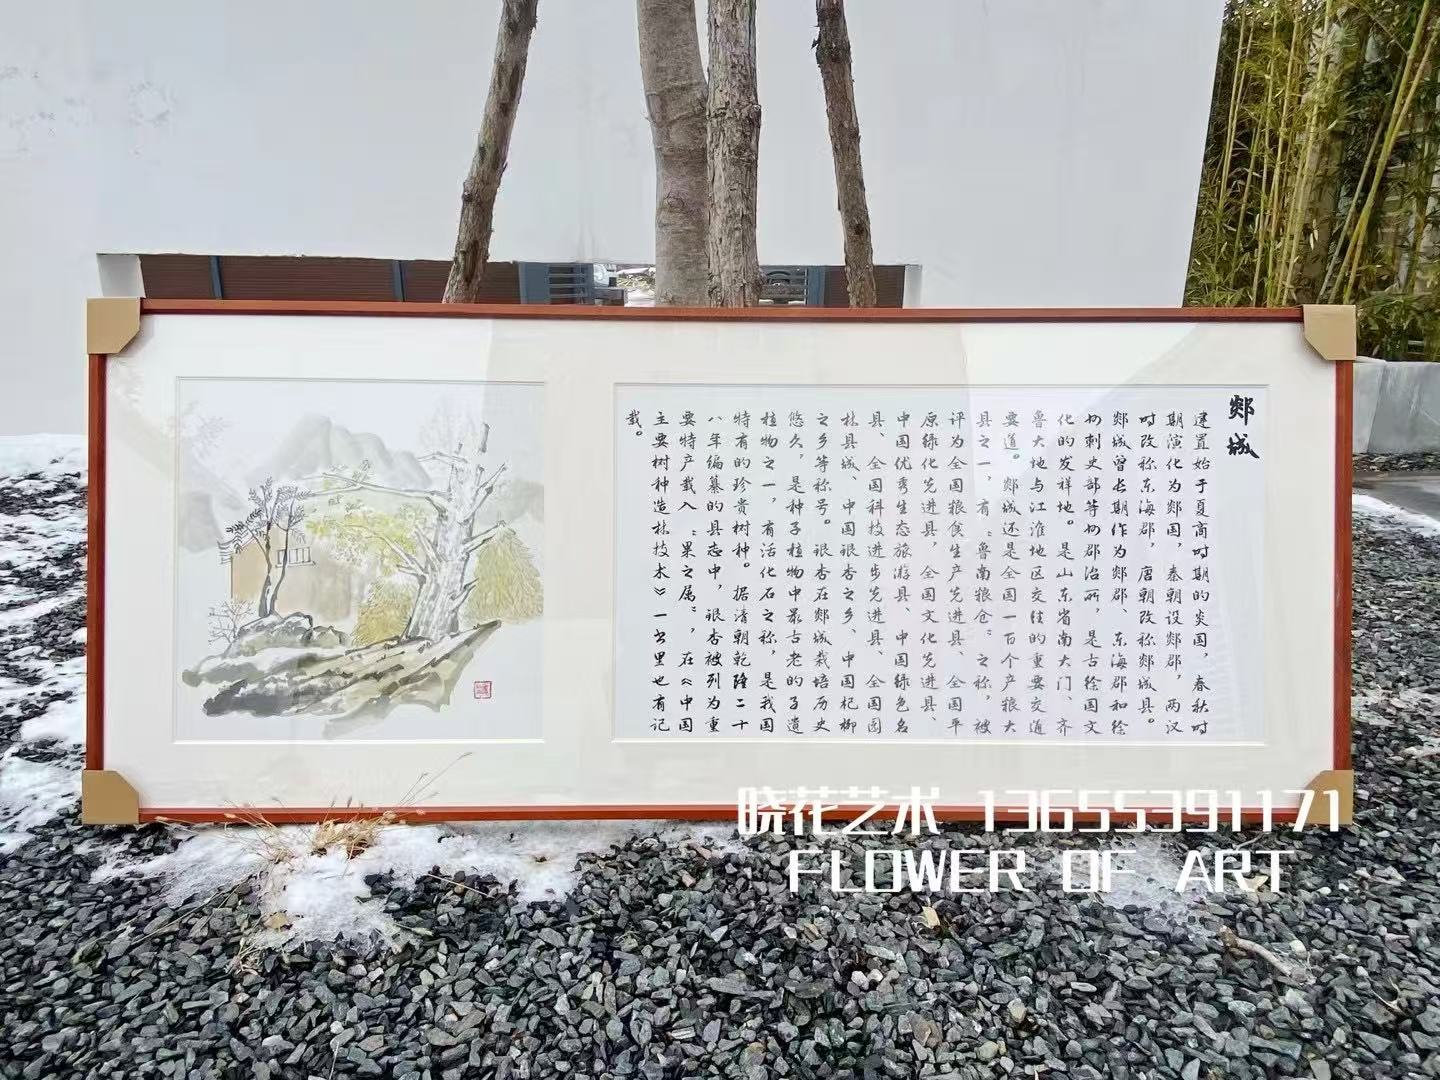 郯城
建置始于夏商时期的炎国，春秋时
期演化为郯国，秦朝设郯郡，两汉
时改称东海郡，唐朝改称郯城县。
郯城曾长期作为郯郡、东海郡和徐
州刺史部等州郡治所，是古徐国文
化的发祥地。是山东省南大门、齐
鲁大地与江淮地区交往的重要交通
要道。郯城还是全国一百个产粮大
县之一，有“鲁南粮仓”之称，被
评为全国粮食生产先进县、全国平
原绿化先进县，全国文化先进县、
中国优秀生态旅游县、中国绿色名
县、全国科技进步先进县、全国园
林县城、中国银杏之乡、中国杞柳
之乡等称号。银杏在郯城栽培历史
悠久，是种子植物中最古老的孑遗
植物之一，有活化石之称，是我国
特有的珍贵树种。据清朝乾隆二十
八年编纂的县志中，银杏被列为重
要特产载入“果之属”，在《中国
主要树种造林技术》一书里也有记
载。
晓花艺术 13655391171
FLOWER OF ART